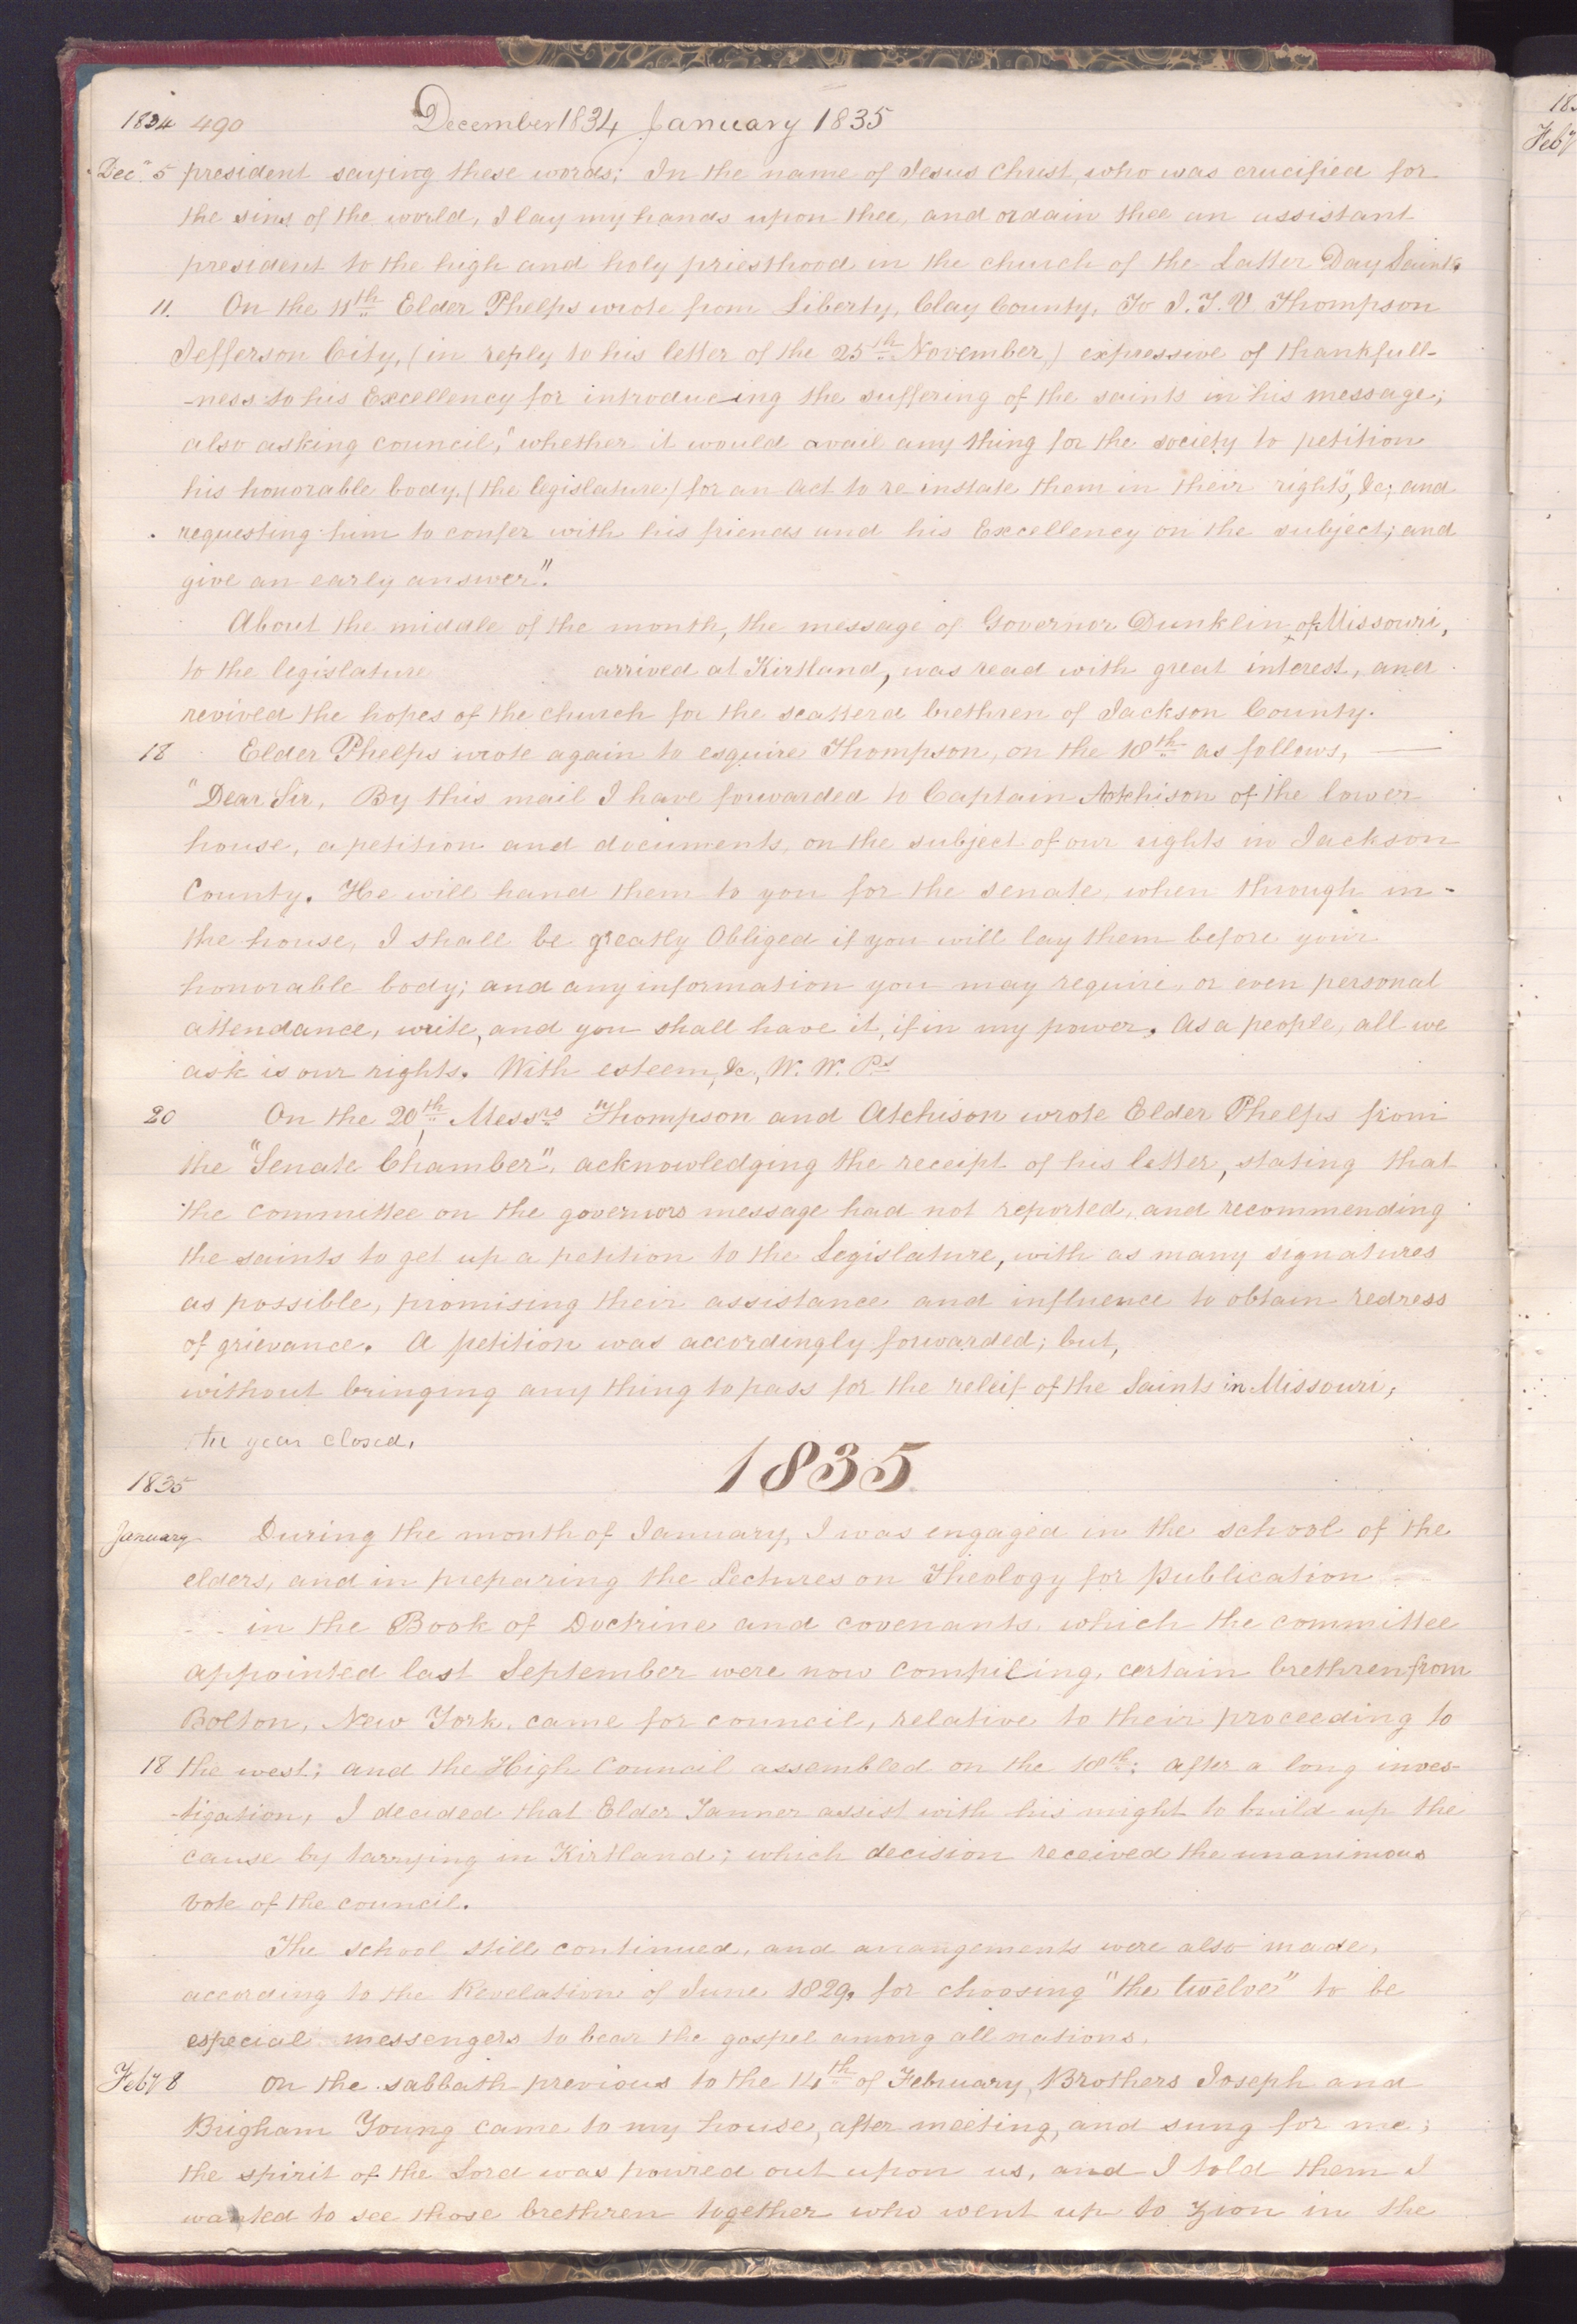 1834 490 December 1834 January 1835
Dec. 5 president saying these words; In the name of Jesus Christ, who was crucified for
the sins of the world, I lay my hands upon thee, and ordain thee an assistant
president to the high and holy priesthood in the church of the Latter Day Saints
11. On the 11th Elder Phelps wrote from Liberty, Clay County, To J. T. V. Thompson
Jefferson City, (in reply to his letter of the 25th November,) expressive of thankfull-
-ness to his Excellency for introducing the suffering of the saints in his message;
also asking council, "whether it would avail any thing for the society to petition
his honorable body, (the legislature) for an act to re instate them in their rights", &c; and
requesting him to confer with his friends and his Excellency on the subject; and
give an early answer".
About the middle of the month, the message of Governor Dunklin, of Missouri,
to the legislature arrived at Kirtland, was read with great interest, and
revived the hopes of the church for the scatterd brethren of Jackson County.
18 Elder Phelps wrote again to esquire Thompson, on the 18th as follows, —
"Dear Sir, By this mail I have forwarded to Captain Atchison of the lower
house, a petition and documents, on the subject of our rights in Jackson
County. He will hand them to you for the senate, when through in-
the house, I shall be greatly Obliged if you will lay them before your
honorable body; and any information you may require, or even personal
attendance, write, and you shall have it, if in my power. As a people, all we
ask is our rights. With esteem, &c, W. W. Ps
20 On the 20th, Messrs Thompson and Atchison wrote Elder Phelps from
the "Senate Chamber", acknowledging the receipt of his letter, stating that
the committee on the governors message had not reported, and recommending
the saints to get up a petition to the Legislature, with as many signatures
as possible, promising their assistance and influence to obtain redress
of grievance. A petition was accordingly forwarded; but,
without bringing any thing to pass for the releif of the Saints in Missouri,
the year closed.
1835
1835
January During the month of January, I was engaged in the school of the
elders, and in preparing the Lectures on Theology for publication
in the Book of Doctrine and covenants, which the committee
appointed last September were now compiling, certain brethren from
Bolton, New York, came for council, relative to their proceeding to
18 the west; and the High Council assembled on the 18th: after a long inves-
-tigation, I decided that Elder Tanner assist with his might to build up the
cause by tarrying in Kirtland; which decision received the unanimous
vote of the council.
The school still continued, and arrangements were also made,
according to the Revelation of June 1829, for choosing "the twelve" to be
especial messengers to bear the gospel among all nations.
Feby 8 On the sabbath previous to the 14th of February, Brothers Joseph and
Brigham Young came to my house, after meeting, and sung for me;
the spirit of the Lord was poured out upon us, and I told them I
wanted to see those brethren together who went up to Zion in the